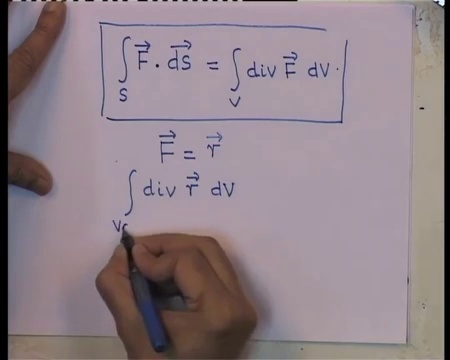 ∫_S F⃗ · dS⃗ = ∫_V div F⃗ dV.
F⃗ = r⃗
∫ div r⃗ dV